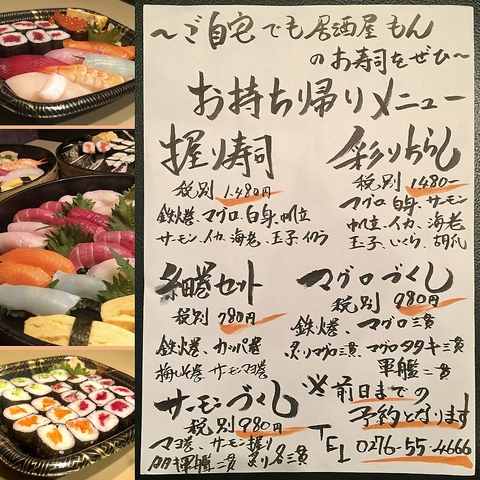 〜ご自宅でも居酒屋もん
のお寿司をぜひ〜
お持ち帰りメニュー
握り寿司
税別1,480円
鉄火巻、マグロ、白身、帆立
サーモン、イカ、海老、玉子、イクラ
彩りちらし
税別1480-
マグロ、白身、サーモン
帆立、イカ、海老
玉子、いくら、胡瓜
細巻セット
税別780円
鉄火巻、カッパ巻
梅しそ巻、サーモンマヨ巻
マグロづくし
税別980円
鉄火巻、マグロ三貫
炙りマグロ三貫、マグロタタキ三貫
軍艦二貫
サーモンづくし
税別980円
マヨ巻、サーモン握り
軍艦二貫 炙り 三貫
※前日までの
予約となります
TEL 0276-55-4666